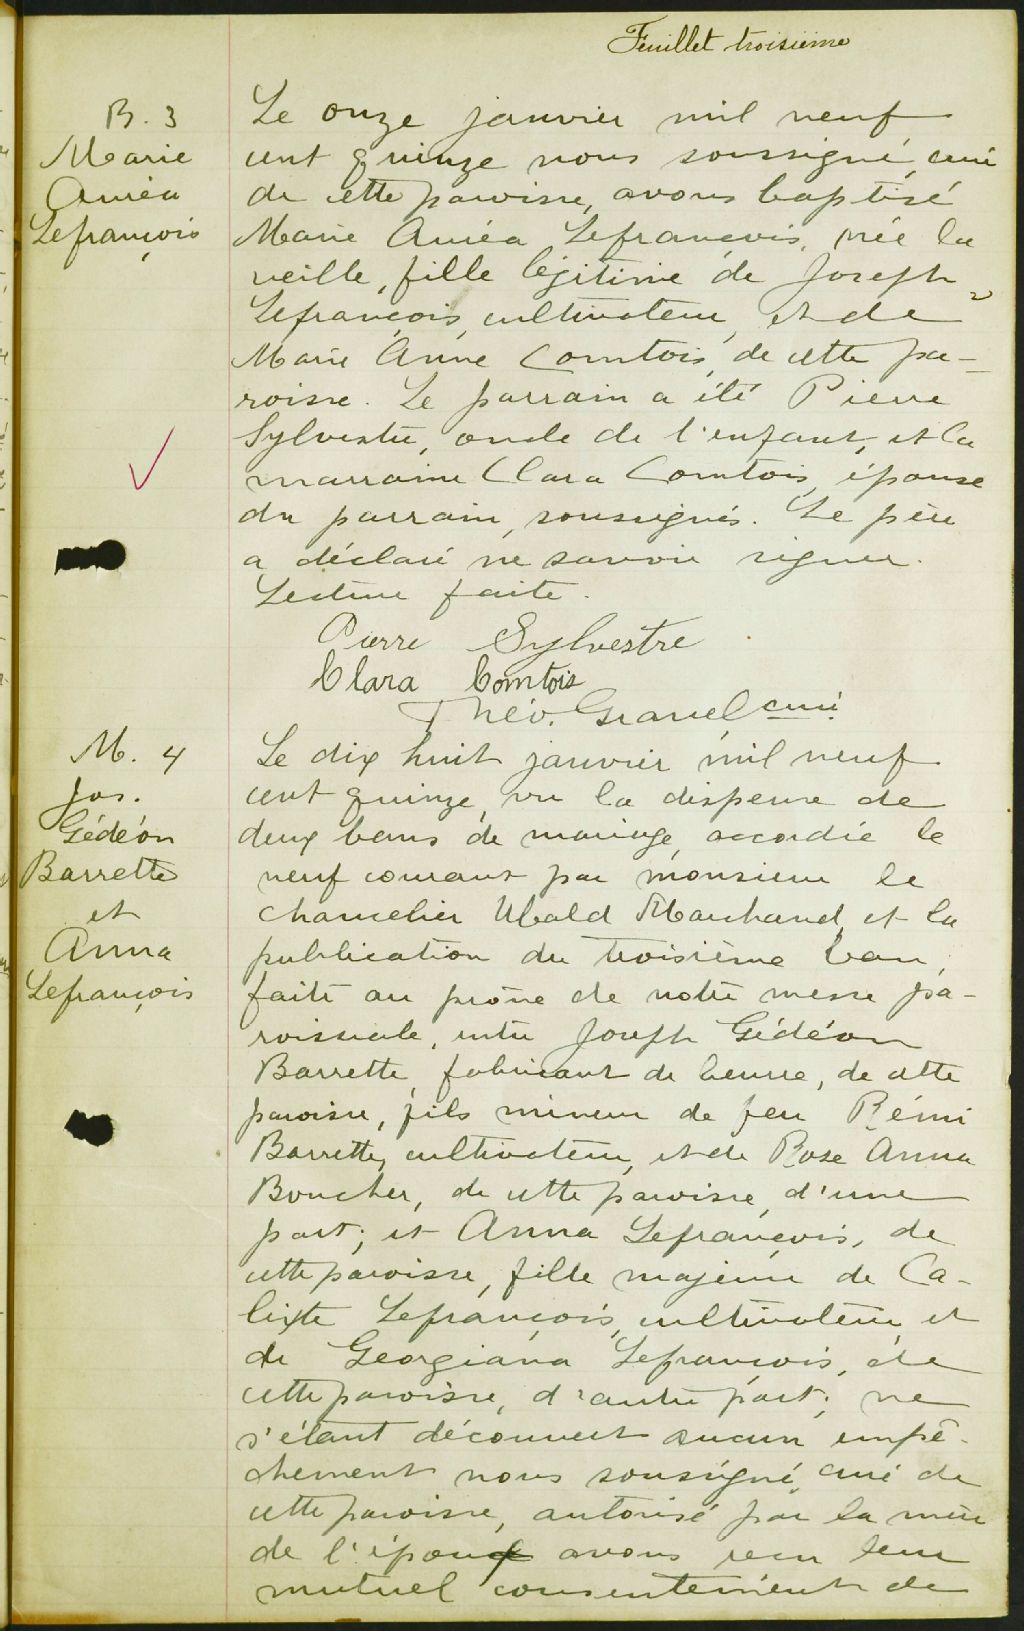 Feuillet troisième
B. 3
Marie
Auréa
Lefrançois
Le onze janvier mil neuf
cent quinze nous soussigné, curé
de cette paroisse, avons baptisé
Marie Auréa Lefrançois, née la
veille, fille légitime de Joseph
Lefrançois, cultivateur, et de
Marie Anne Comtois, de cette pa-
roisse. Le parrain a été Pierre
Sylvestre, oncle de l'enfant, et la
marraine Clara Comtois, épouse
du parrain, soussignés. Le père
a déclaré ne savoir signer.
Lecture faite.
Pierre Sylvestre
Clara Comtois
Théo. Gravel curé
M. 4
Jos.
Gédéon
Barrette
et
Anna
Lefrançois
Le dix huit janvier mil neuf
cent quinze, vu la dispense de
deux bans de mariage, accordée le
neuf courant par monsieur le
chancelier Ubald Marchand, et la
publication du troisième ban,
faite au prône de notre messe pa-
roissiale, entre Joseph Gédéon
Barrette, fabricant de beurre, de cette
paroisse, fils mineur de feu Rémi
Barrette, cultivateur, et de Rose Anna
Boucher, de cette paroisse, d'une
part; et Anna Lefrançois, de
cette paroisse, fille majeure de Ca-
lixte Lefrançois, cultivateur, et
de Georgiana Lefrançois, de
cette paroisse, d'autre part; ne
s'étant découvert aucun empê-
chement nous soussigné, curé de
cette paroisse, autorisé par la mère
de l'époux avons reçu leur
mutuel consentement de